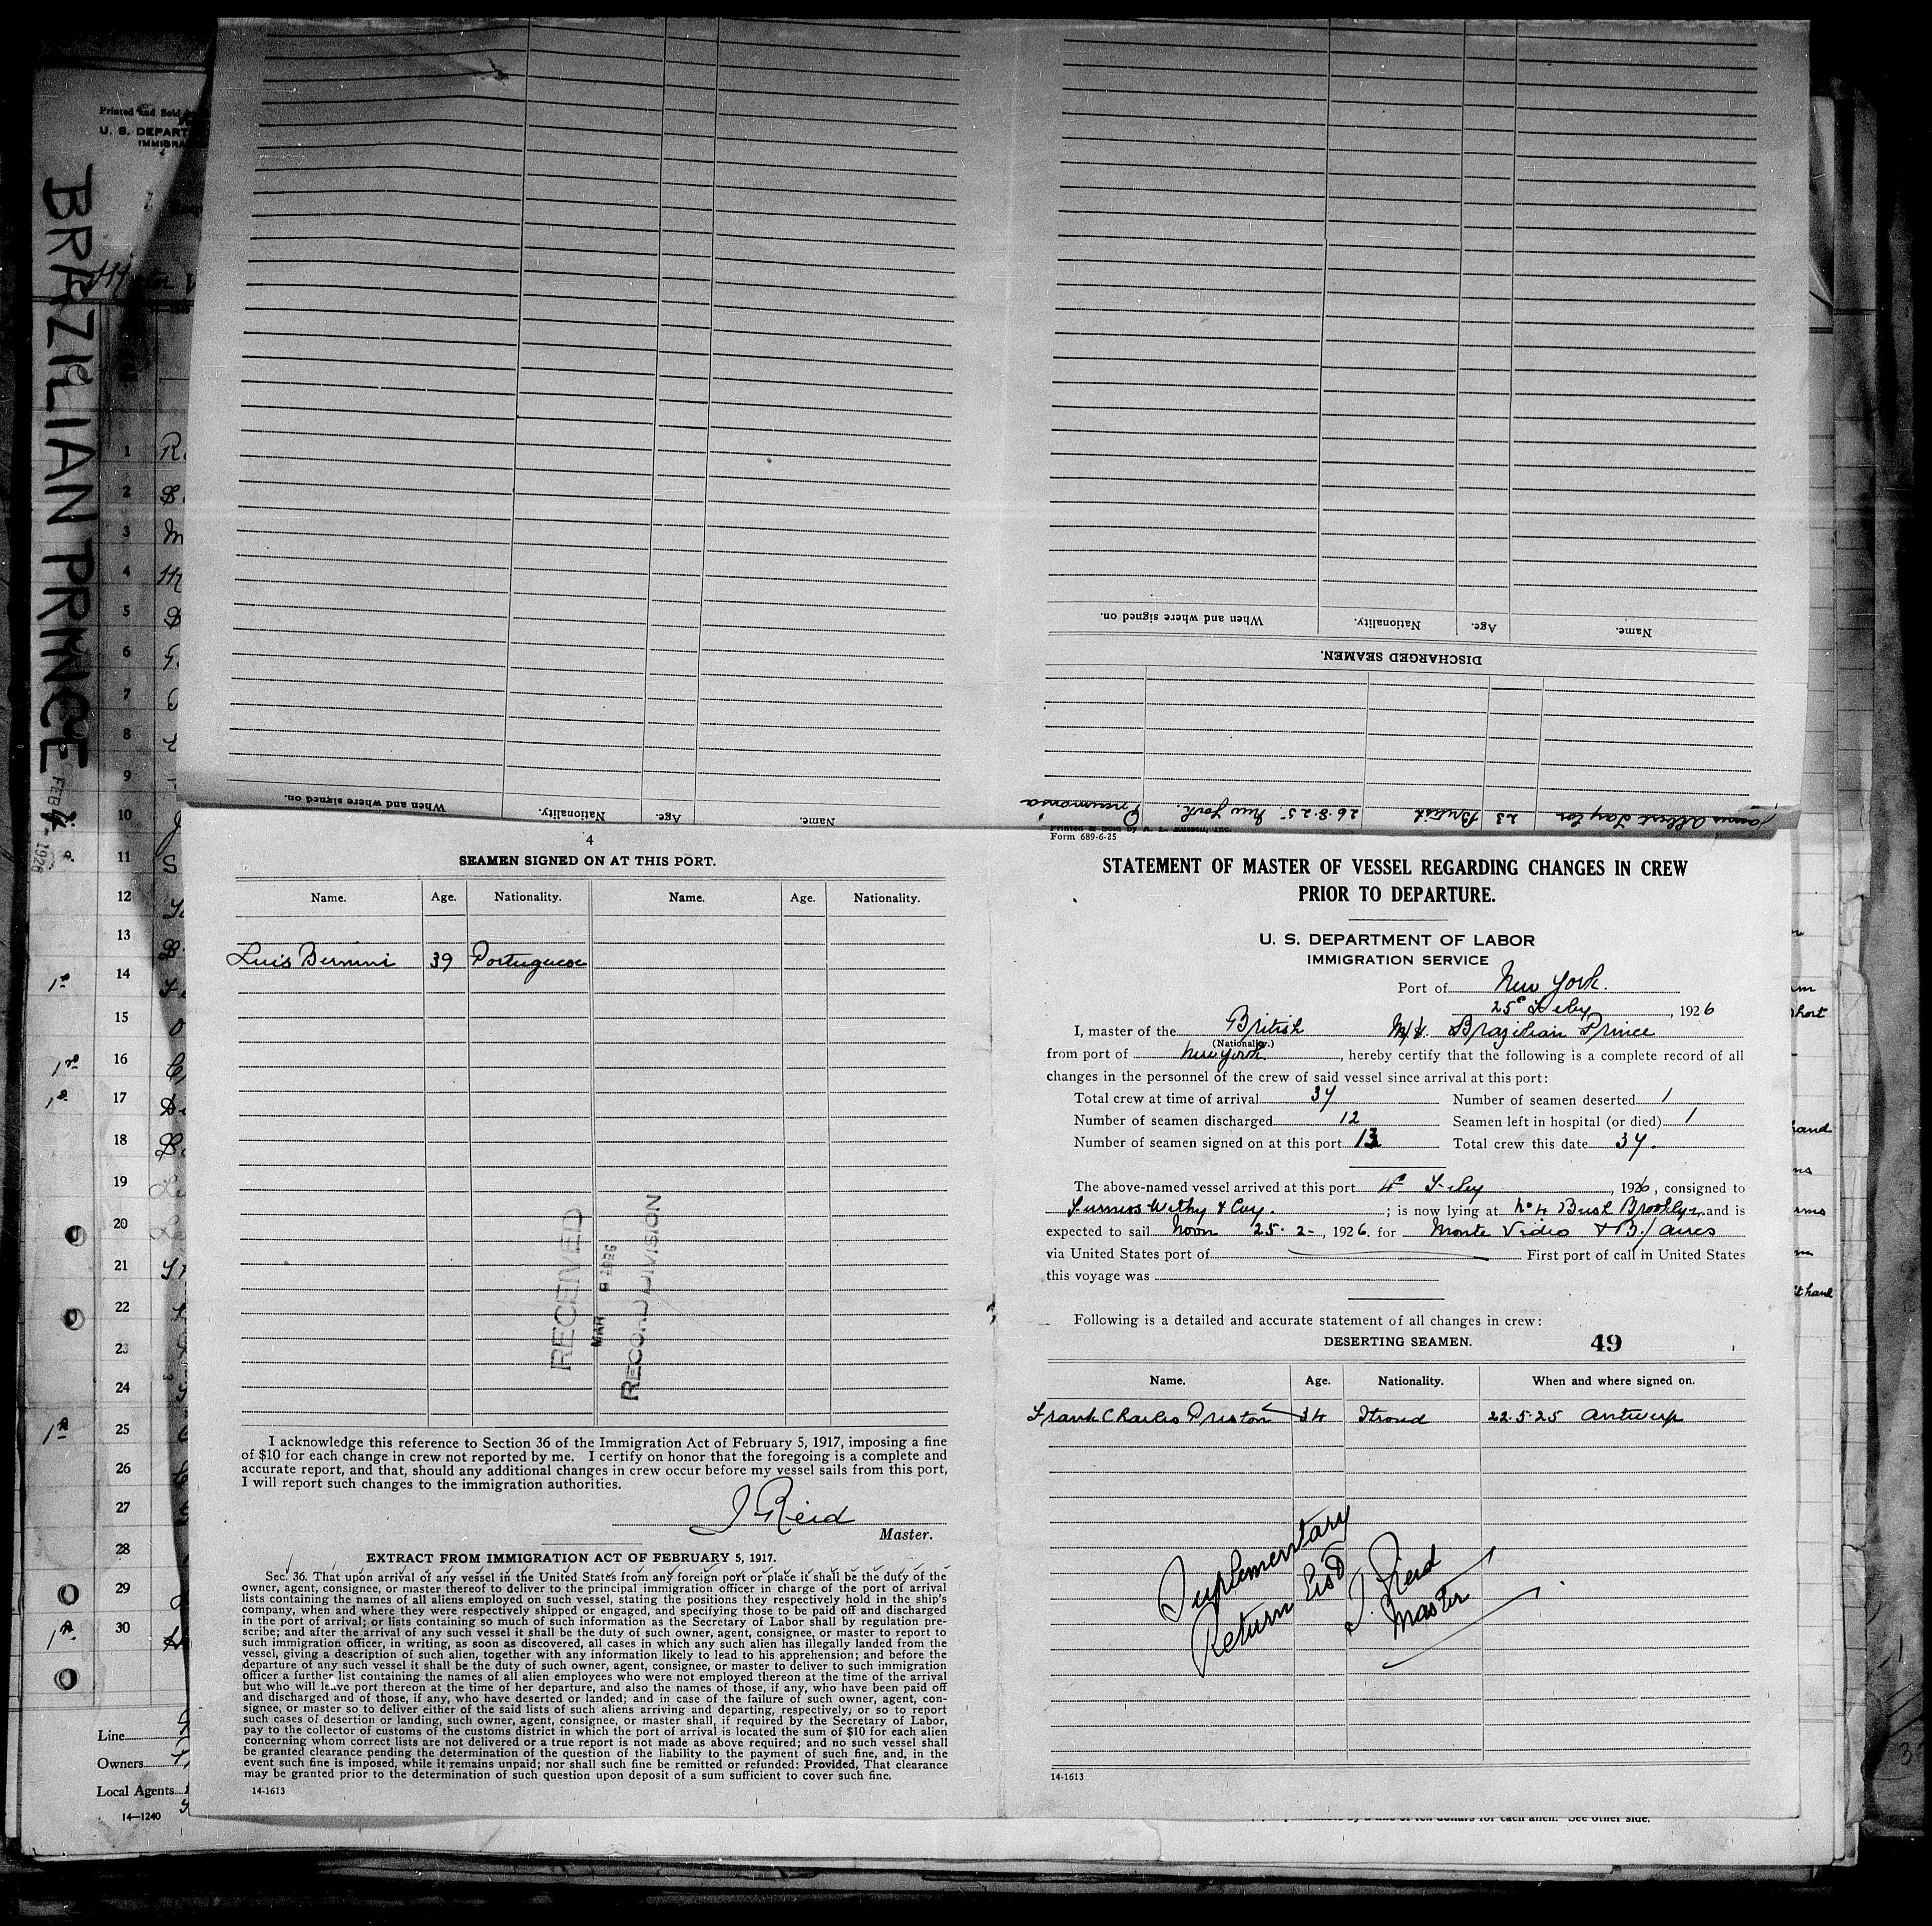 Printed and Sold
U. S. DEPART
IMMIGRA
BRAZILIAN PRINCE
FEB 4 - 1926
1
2
3
4
5
6
7
8
9
10
11
12
13
14
15
16
17
18
19
20
21
22
23
24
25
26
27
28
29
30
Line
Owners
Local Agents
14—1240
When and where signed on.
Nationality.
Age.
Name.
Name.
Age.
Nationality.
When and where signed on.
DISCHARGED SEAMEN.
James Albert Taylor 23 British 26.8.25. New York. Pneumonia
4
SEAMEN SIGNED ON AT THIS PORT.
Name. Age. Nationality. Name. Age. Nationality.
Luis Bernini 39 Portuguese
RECEIVED
MAR 8 1926
RECORD DIVISION
I acknowledge this reference to Section 36 of the Immigration Act of February 5, 1917, imposing a fine
of $10 for each change in crew not reported by me. I certify on honor that the foregoing is a complete and
accurate report, and that, should any additional changes in crew occur before my vessel sails from this port,
I will report such changes to the immigration authorities.
J Reid
Master.
EXTRACT FROM IMMIGRATION ACT OF FEBRUARY 5, 1917.
Sec. 36. That upon arrival of any vessel in the United States from any foreign port or place it shall be the duty of the
owner, agent, consignee, or master thereof to deliver to the principal immigration officer in charge of the port of arrival
lists containing the names of all aliens employed on such vessel, stating the positions they respectively hold in the ship's
company, when and where they were respectively shipped or engaged, and specifying those to be paid off and discharged
in the port of arrival; or lists containing so much of such information as the Secretary of Labor shall by regulation pre-
scribe; and after the arrival of any such vessel it shall be the duty of such owner, agent, consignee, or master to report to
such immigration officer, in writing, as soon as discovered, all cases in which any such alien has illegally landed from the
vessel, giving a description of such alien, together with any information likely to lead to his apprehension; and before the
departure of any such vessel it shall be the duty of such owner, agent, consignee, or master to deliver to such immigration
officer a further list containing the names of all alien employees who were not employed thereon at the time of the arrival
but who will leave port thereon at the time of her departure, and also the names of those, if any, who have been paid off
and discharged and of those, if any, who have deserted or landed; and in case of the failure of such owner, agent, con-
signee, or master so to deliver either of the said lists of such aliens arriving and departing, respectively, or so to report
such cases of desertion or landing, such owner, agent, consignee, or master shall, if required by the Secretary of Labor,
pay to the collector of customs of the customs district in which the port of arrival is located the sum of $10 for each alien
concerning whom correct lists are not delivered or a true report is not made as above required; and no such vessel shall
be granted clearance pending the determination of the question of the liability to the payment of such fine, and, in the
event such fine is imposed, while it remains unpaid; nor shall such fine be remitted or refunded: Provided, That clearance
may be granted prior to the determination of such question upon deposit of a sum sufficient to cover such fine.
14-1613
Form 689-6-25
STATEMENT OF MASTER OF VESSEL REGARDING CHANGES IN CREW
PRIOR TO DEPARTURE.
U. S. DEPARTMENT OF LABOR
IMMIGRATION SERVICE
Port of New York.
25th Feby, 1926
I, master of the British M/V. Brazilian Prince
(Nationality.)
from port of New York, hereby certify that the following is a complete record of all
changes in the personnel of the crew of said vessel since arrival at this port:
Total crew at time of arrival 34 Number of seamen deserted 1
Number of seamen discharged 12 Seamen left in hospital (or died) 1
Number of seamen signed on at this port 13 Total crew this date 34.
The above-named vessel arrived at this port 4th Feby, 1926, consigned to
Furness Withy & Coy.; is now lying at No 4 Bush Brooklyn and is
expected to sail Noon 25. 2-, 1926. for Monte Video & B/ Aires
via United States port of First port of call in United States
this voyage was
Following is a detailed and accurate statement of all changes in crew:
DESERTING SEAMEN. 49
Name. Age. Nationality. When and where signed on.
Frank Charles Preston 34 Stroud 22.5.25 Antwerp
Suplementary
Return List
J. Reid
Master
14-1613
See other side.